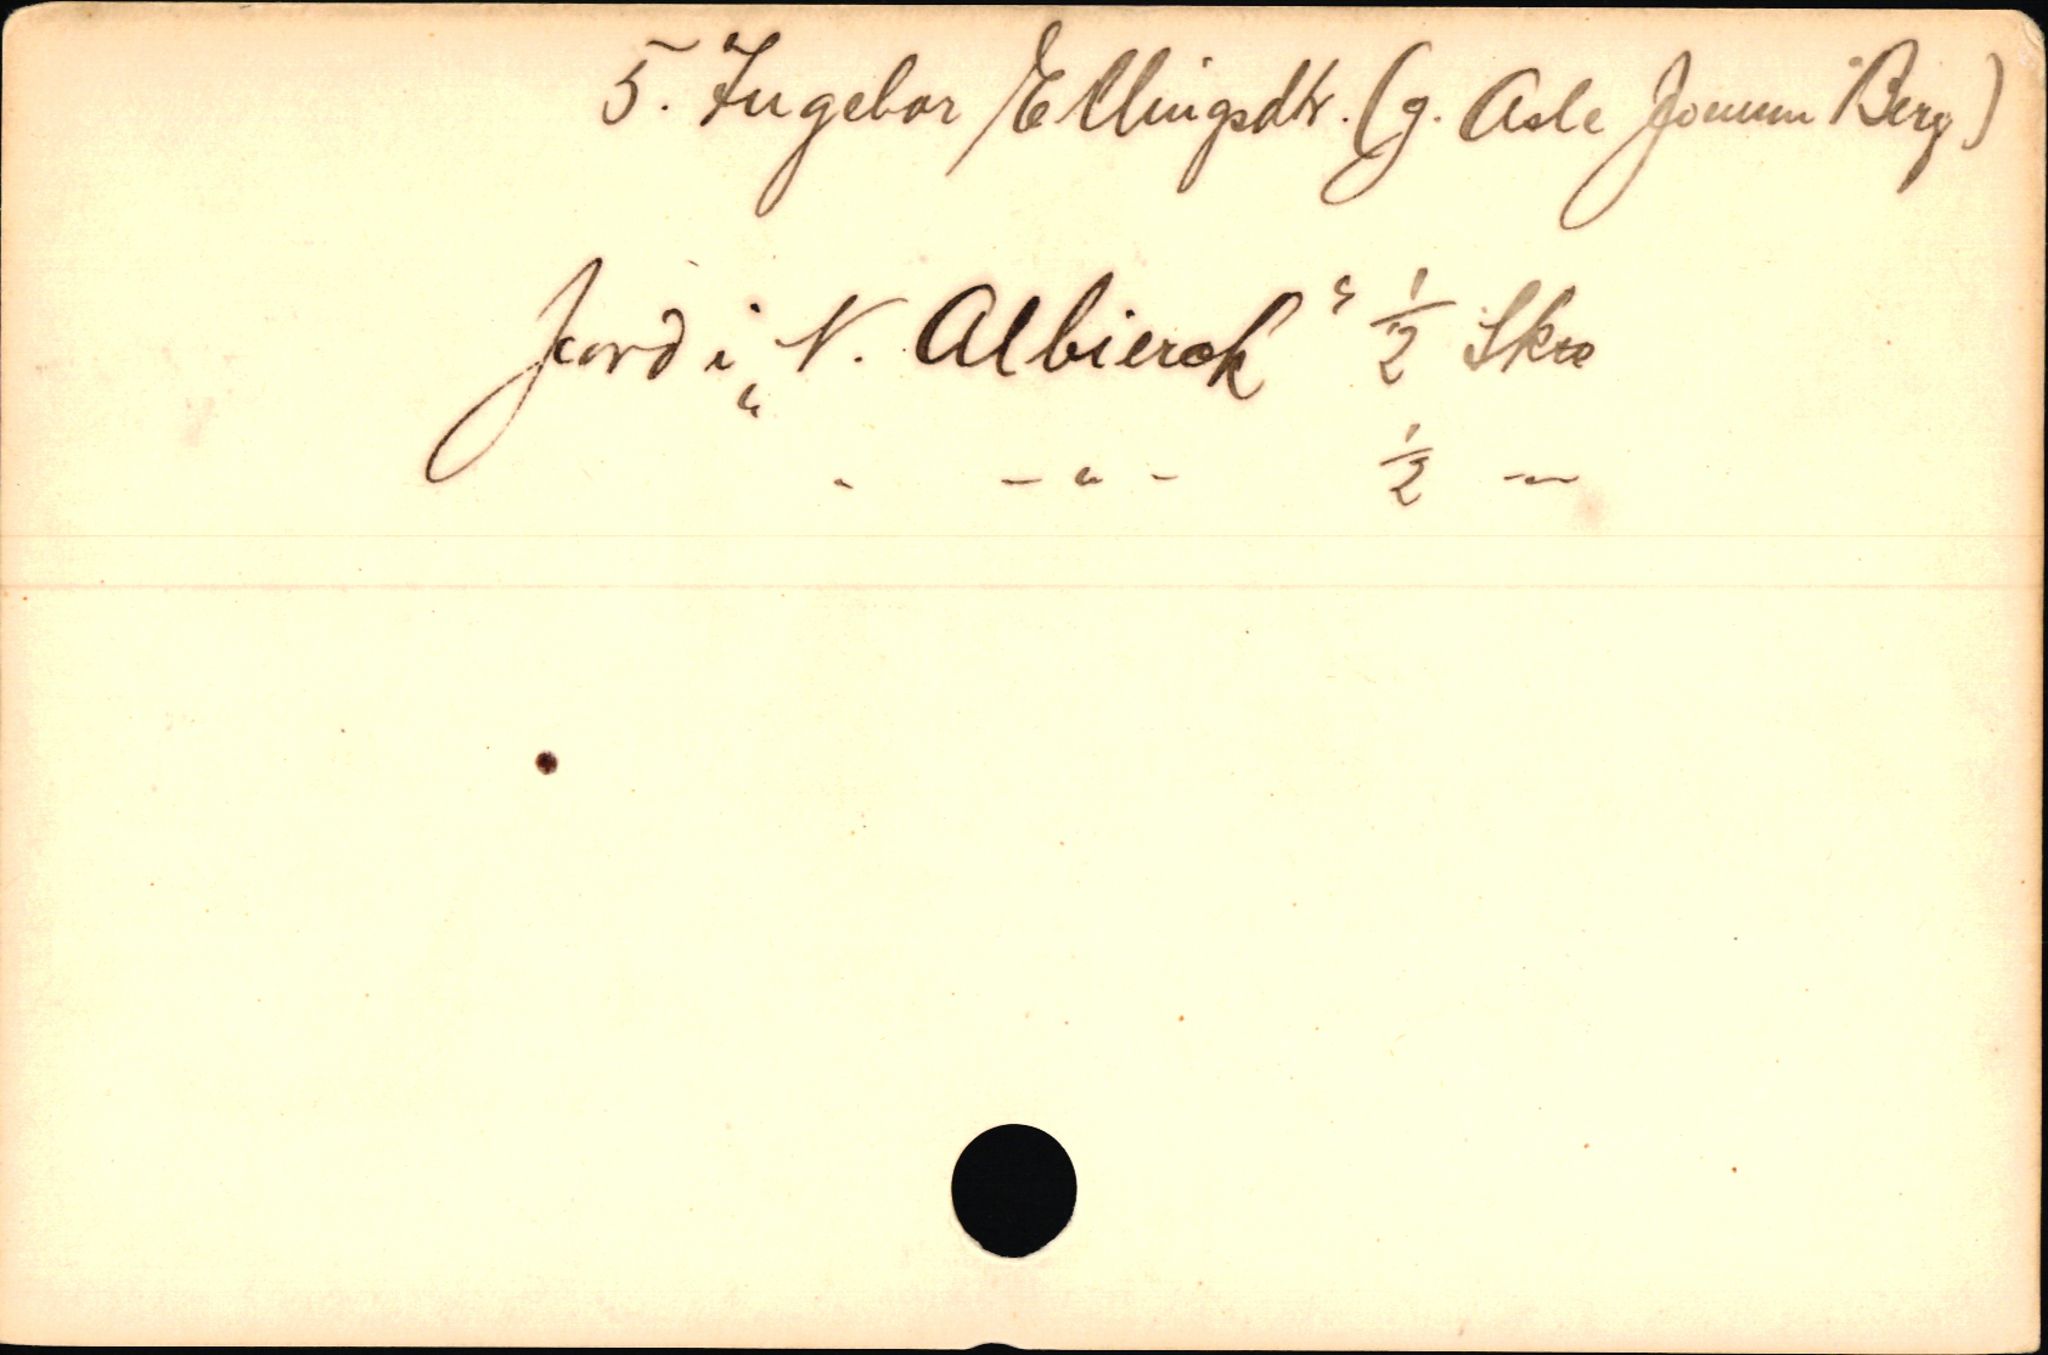 5. Ingebor Ellingsdtr. (g. Asle Jonsen Berg)
Jord i „N. Albierck“ 1/2 Skre
" - " - 1/2 -"-